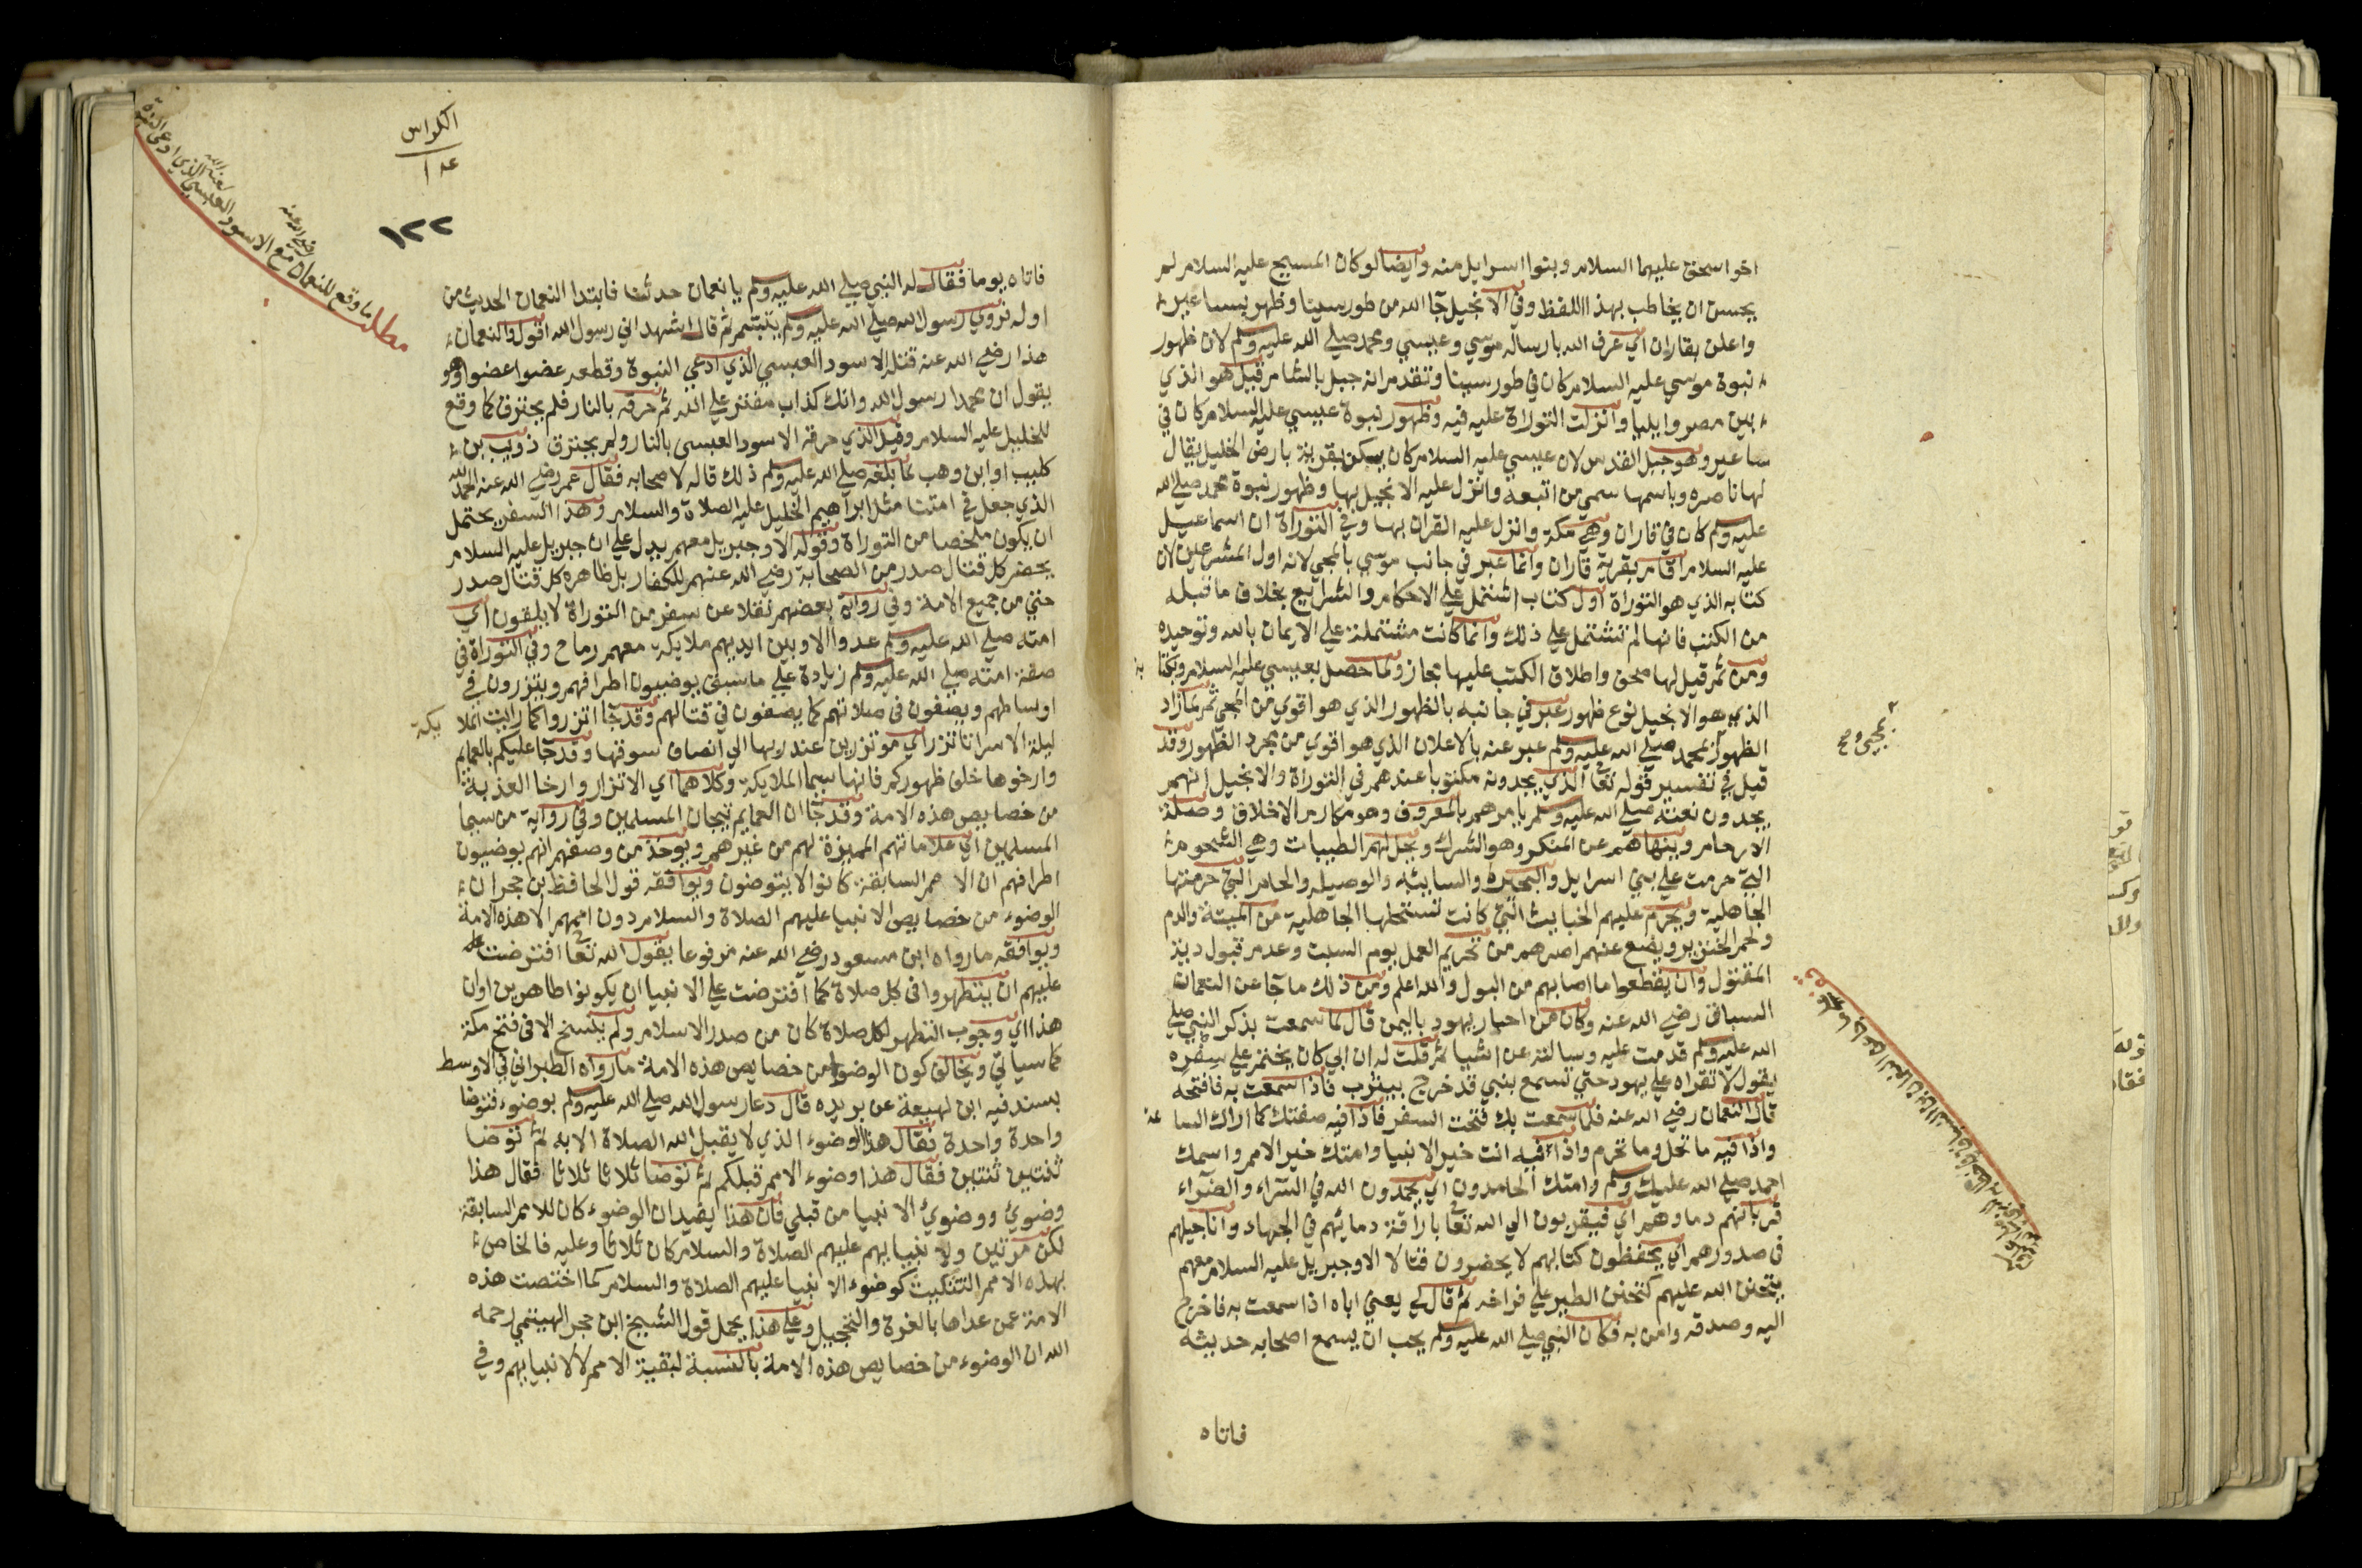 اخو اسحق عليهما السلام وبنوا اسرايل منه وايضا لو كان المسيح عليه السلام لم
يحسن ان يخاطب بهذا اللفظ وفي الانجيل جآ الله من طور سينا وظهر بساعير
واعلن بفاران اي عرف الله بارساله موسي وعيسي ومحمد صلي الله عليه وسلم لان ظهور
نبوة موسي عليه السلام كان في طور سينا وتقدم انه جبل بالشام قيل هو الذي
بين مصر وايليا وانزلت التوراة عليه فيه وظهور نبوة عيسي عليه السلام كان في
ساعير وهو جبل القدس لان عيسي عليه السلام كان يسكن بقرية بارض الخليل يقال
لها ناصره وباسمها سمي من اتبعه وانزل عليه الانجيل بها وظهور نبوة محمد صلي الله
عليه وسلم كان في فاران وهي مكة وانزل عليه القران بها وفي التوراة ان اسماعيل
عليه السلام اقام بقرية فاران وانما عبر في جانب موسي بالمجي لانه اول المشرعين لان
كتابه الذي هو التوراة اول كتاب اشتمل علي الاحكام والشرايع بخلاف ما قبله
من الكتب فانها لم تشتمل علي ذلك وانما كانت مشتملة علي الايمان بالله وتوحيده
ومن ثم قيل لها صحف واطلاق الكتب عليها مجاز ولما حصل بعيسي عليه السلام وبكتا به
الذي هو الانجيل نوع ظهور عبر في جانبه بالظهور الذي هو اقوي من المجي ثم لما زاد
الظهور بمجي محمد صلي الله عليه وسلم عبر عنه بالاعلان الذي هو اقوي من مجرد الظهور وقد
قيل في تفسير قوله تعا الذي يجدونه مكتوبا عندهم في التوراة والانجيل انهم
يجدون نعته صلي الله عليه وسلم يامرهم بالمعروف وهو مكارم الاخلاق وصلة
الارحام وينهاهم عن المنكر وهو الشرك ويحل لهم الطيبات وهي الشحوم
التي حرمت علي بني اسرايل والبحيرة والسائبه والوصيله والحام التي حرمتها
الجاهلية ويحرم عليهم الخبايث التي كانت تستحلها الجاهلية من الميتة والدم
ولحم الخنزير ويضع عنهم اصرهم من تحريم العمل يوم السبت وعدم قبول دية
المقتول وان يقطعوا ما اصابهم من البول والله اعلم ومن ذلك ما جآ عن النعمان
السباني رضي الله عنه وكان من احبار يهود باليمن قال لما سمعت بذكر النبي صلي
الله عليه وسلم قدمت عليه وسالته عن اشيا ثم قلت له ان ابي كان يختم علي سفره
يقول لا تقراه علي يهود حتي تسمع بنبي قد خرج بيثرب فاذا سمعت به فافتحه
قال النعمان رضي الله عنه فلما سمعت بك فتحت السفر فاذا فيه صفتك كما اراك السا عة
واذا فيه ما تحل وما تحرم واذا فيه انت خير الانبيا وامتك خير الامم واسمك
احمد صلي الله عليك وسلم وامتك الحامدون اي يحمدون الله في السراء والضراء
قربانهم دماوهم اي فيقربون الي الله تعا باراقة دمايهم في الجهاد واناجيلهم
في صدورهم اي يحفظون كتابهم لا يحضرون قتالا الا وجبريل عليه السلام معهم
يتحنن الله عليهم كتحنن الطير علي فراخه ثم قال لي يعني اباه اذا سمعت به فاخرج
اليه وصدقه وامن به فكان النبي صلي الله عليه وسلم يحب ان يسمع اصحابه حديثه
فاتاه
الكراس
١٢٢
مطلب ما وقع للنعمان رضي الله عنه مع الاسود العبسي لعنه الله الذي ادعي النبوة
فاتاه يوما فقال له النبي صلي الله عليه وسلم يا نعمان حدثنا فابتدا النعمان الحديث من
اوله فروي رسول الله صلي الله عليه وسلم يتبسم ثم قال اشهد اني رسول الله اقول والنعمان
هذا رضي الله عنه قتله الاسود العبسي الذي ادعي النبوة وقطعه عضوا عضوا وهو
يقول ان محمدا رسول الله وانك كذاب مفتر علي الله ثم حرقه بالنار فلم يحترق كما وقع
للخليل عليه السلام وقيل الذي حرقه الاسود العبسي بالنار ولم يحترق ذويب بن
كليب او ابن وهب لما بلغه صلي الله عليه وسلم ذلك قاله لاصحابه فقال عمر رضي الله عنه الحمد لله
الذي جعل في امتنا مثل ابراهيم الخليل عليه الصلاة والسلام وهذا السفر يحتمل
ان يكون ملخصا من التوراة وقوله الا وجبريل معهم يدل علي ان جبريل عليه السلام
يحضر كل قتال صدر من الصحابة رضي الله عنهم للكفار بل ظاهره كل قتال صدر
حتي من جميع الامة وفي رواية بعضهم نقلا عن سفر من التوراة لا يلقون اي
امته صلي الله عليه وسلم عدوا الا وبين ايديهم ملايكة معهم رماح وفي التوراة في
صفة امته صلي الله عليه وسلم زيادة علي ما سبق يوضيون اطرافهم ويتزرون في
اوساطهم ويصفون في صلاتهم كما يصفون في قتالهم وقد جآ اتزروا كما رايت الملا يكة
ليلة الاسرا تاتزر اي موتزرين عند ربها الي انصاف سوقها وقد جآ عليكم بالعمايم
وارخوها خلف ظهوركم فانها سيما الملايكة وكلاهما اي الاتزار وارخا العذبة
من خصايص هذه الامة وقد جآ ان العمايم تيجان المسلمين وفي رواية من سيما
المسلمين اي علاماتهم المميزة لهم من غيرهم ويوخذ من وصفهم انهم يوضيون
اطرافهم ان الامم السابقة كانوا لا يتوضون ويوافقه قول الحافظ بن حجر ان
الوضوء من خصايص الانبيا عليهم الصلاة والسلام دون اممهم الا هذه الامة
ويوافقه ما رواه ابن مسعود رضي الله عنه مرفوعا يقول الله تعا افترضت
عليهم ان يتطهروا في كل صلاة كما افترضت علي الانبيا ان يكونوا طاهرين اوان
هذا اي وجوب التطهر لكل صلاة كان من صدر الاسلام ولم ينسخ الا في فتح مكة
كما سياتي ويخالف كون الوضوء من خصايص هذه الامة ما رواه الطبراني في الاوسط
بسند فيه ابن لهيعة عن بريده قال دعا رسول الله صلي الله عليه وسلم بوضوء فتوضا
واحدة واحدة فقال هذا الوضوء الذي لا يقبل الله الصلاة الا به ثم توضا
ثنتين ثنتين فقال هذا وضوء الامم قبلكم ثم توضا ثلاثا ثلاثا فقال هذا
وضوئ ووضوئ الانبيا من قبلي فان هذا يفيد ان الوضوء كان للامم السابقة
لكن مرتين ولانبيايهم عليهم الصلاة والسلام كان ثلاثا وعليه فالخاص
بهذه الامم التثليث كوضوء الانبيا عليهم الصلاة والسلام كما اختصت هذه
الامة عمن عداها بالغرة والتحجيل وعلي هذا يحمل قول الشيخ ابن حجر الهيتمي رحمه
الله ان الوضوء من خصايص هذه الامة بالنسبة لبقية الامم لا لانبيايهم وفي